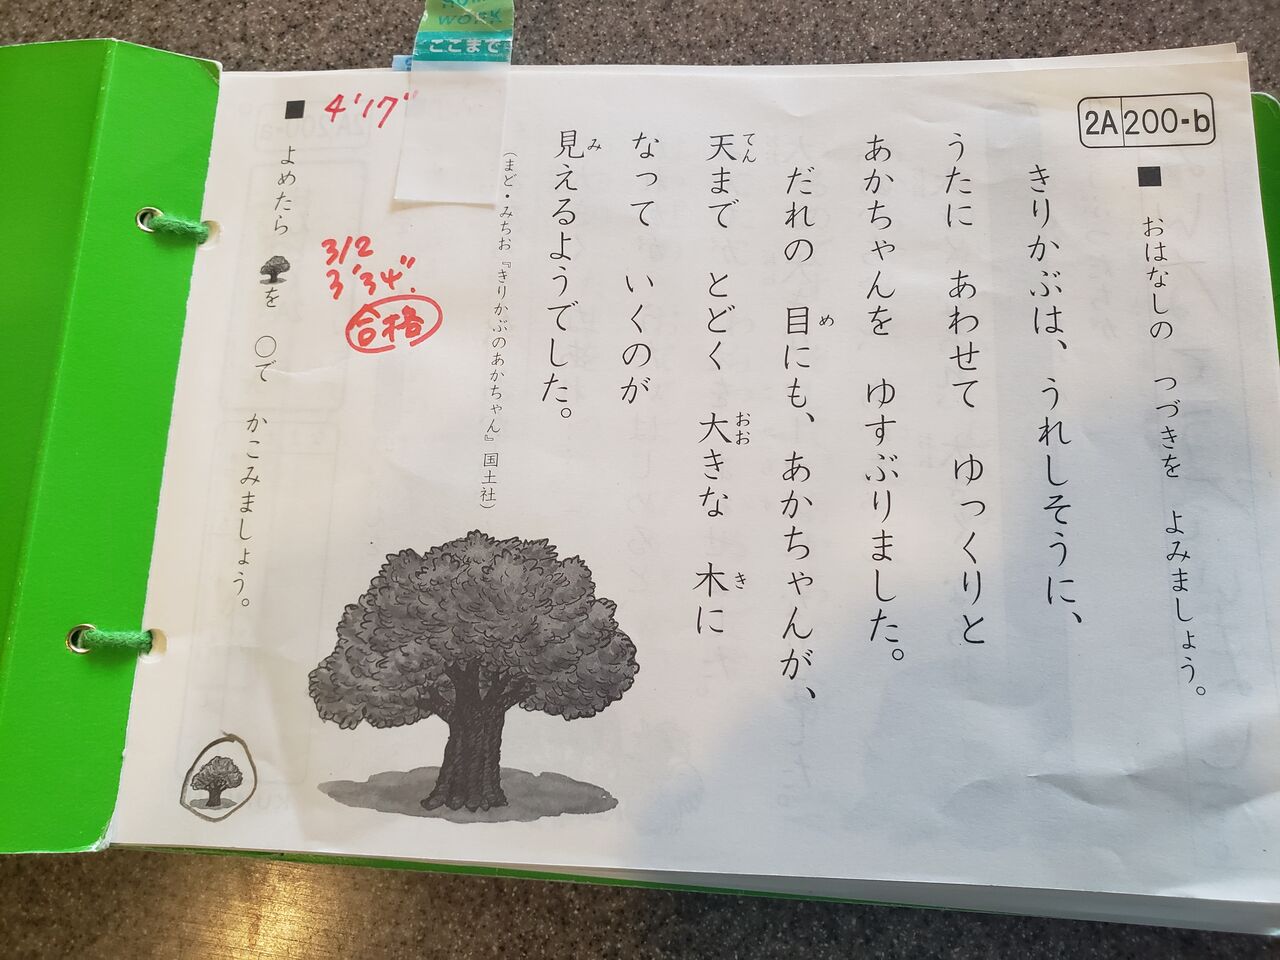 WORK
ここまで
2A 200-b
■ おはなしの つづきを よみましょう。
きりかぶは、うれしそうに、
うたに あわせて ゆっくりと
あかちゃんを ゆすぶりました。
だれの 目にも、あかちゃんが、
め
天まで とどく 大きな 木に
てん おお き
なって いくのが
見えるようでした。
み
(まど・みちお『きりかぶのあかちゃん』国土社)
■ よめたら を ○で かこみましょう。
4'17"
3/2
3'34"
合格